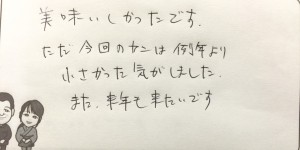 美味いしかったです.
ただ今回のカニは例年より
小さかった気がしました.
また、来年も来たいです